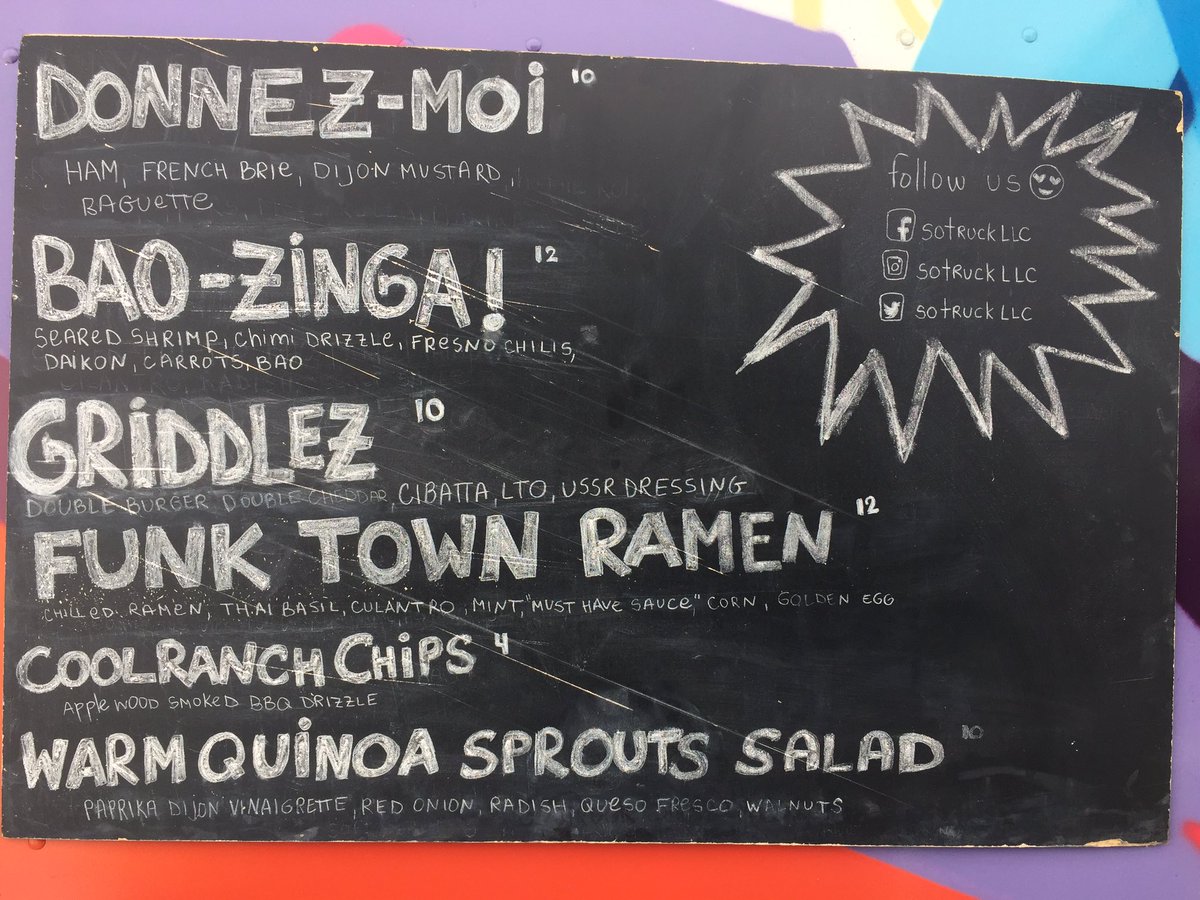 DONNEZ-MOi 10
HAM, FRENCH BRie, DIJON MUSTARD,
BAGUeTTe
BAO-ZiNGA! 12
SeARED SHRIMP, Chimi DRIZZLe, FReSNO CHILIS,
DAIKON, CARROTS, BAO
GRiDDLEZ 10
DOUBLE BURGER, DOUBLE CHEDDAR, CIBATTA, LTO, USSR DRESSING
FUNK TOWN RAMEN 12
CHILLeD RAMEN, THAI BASIL, CULANTRO, MINT, "MUST HAVe SAUCe," CORN, GOLDEN EGG
COOLRANCH CHiPS 4
Apple WOOD SMOKeD BBQ DRIZZLE
WARM QUiNOA SPROUTS SALAD 10
PAPRIKA DIJON VINAIGRETTE, RED ONION, RADISH, QUeSO FReSCO, WALNUTS
follow us
f SOTRUCKLLC
SOTRUCKLLC
SOTRUCKLLC